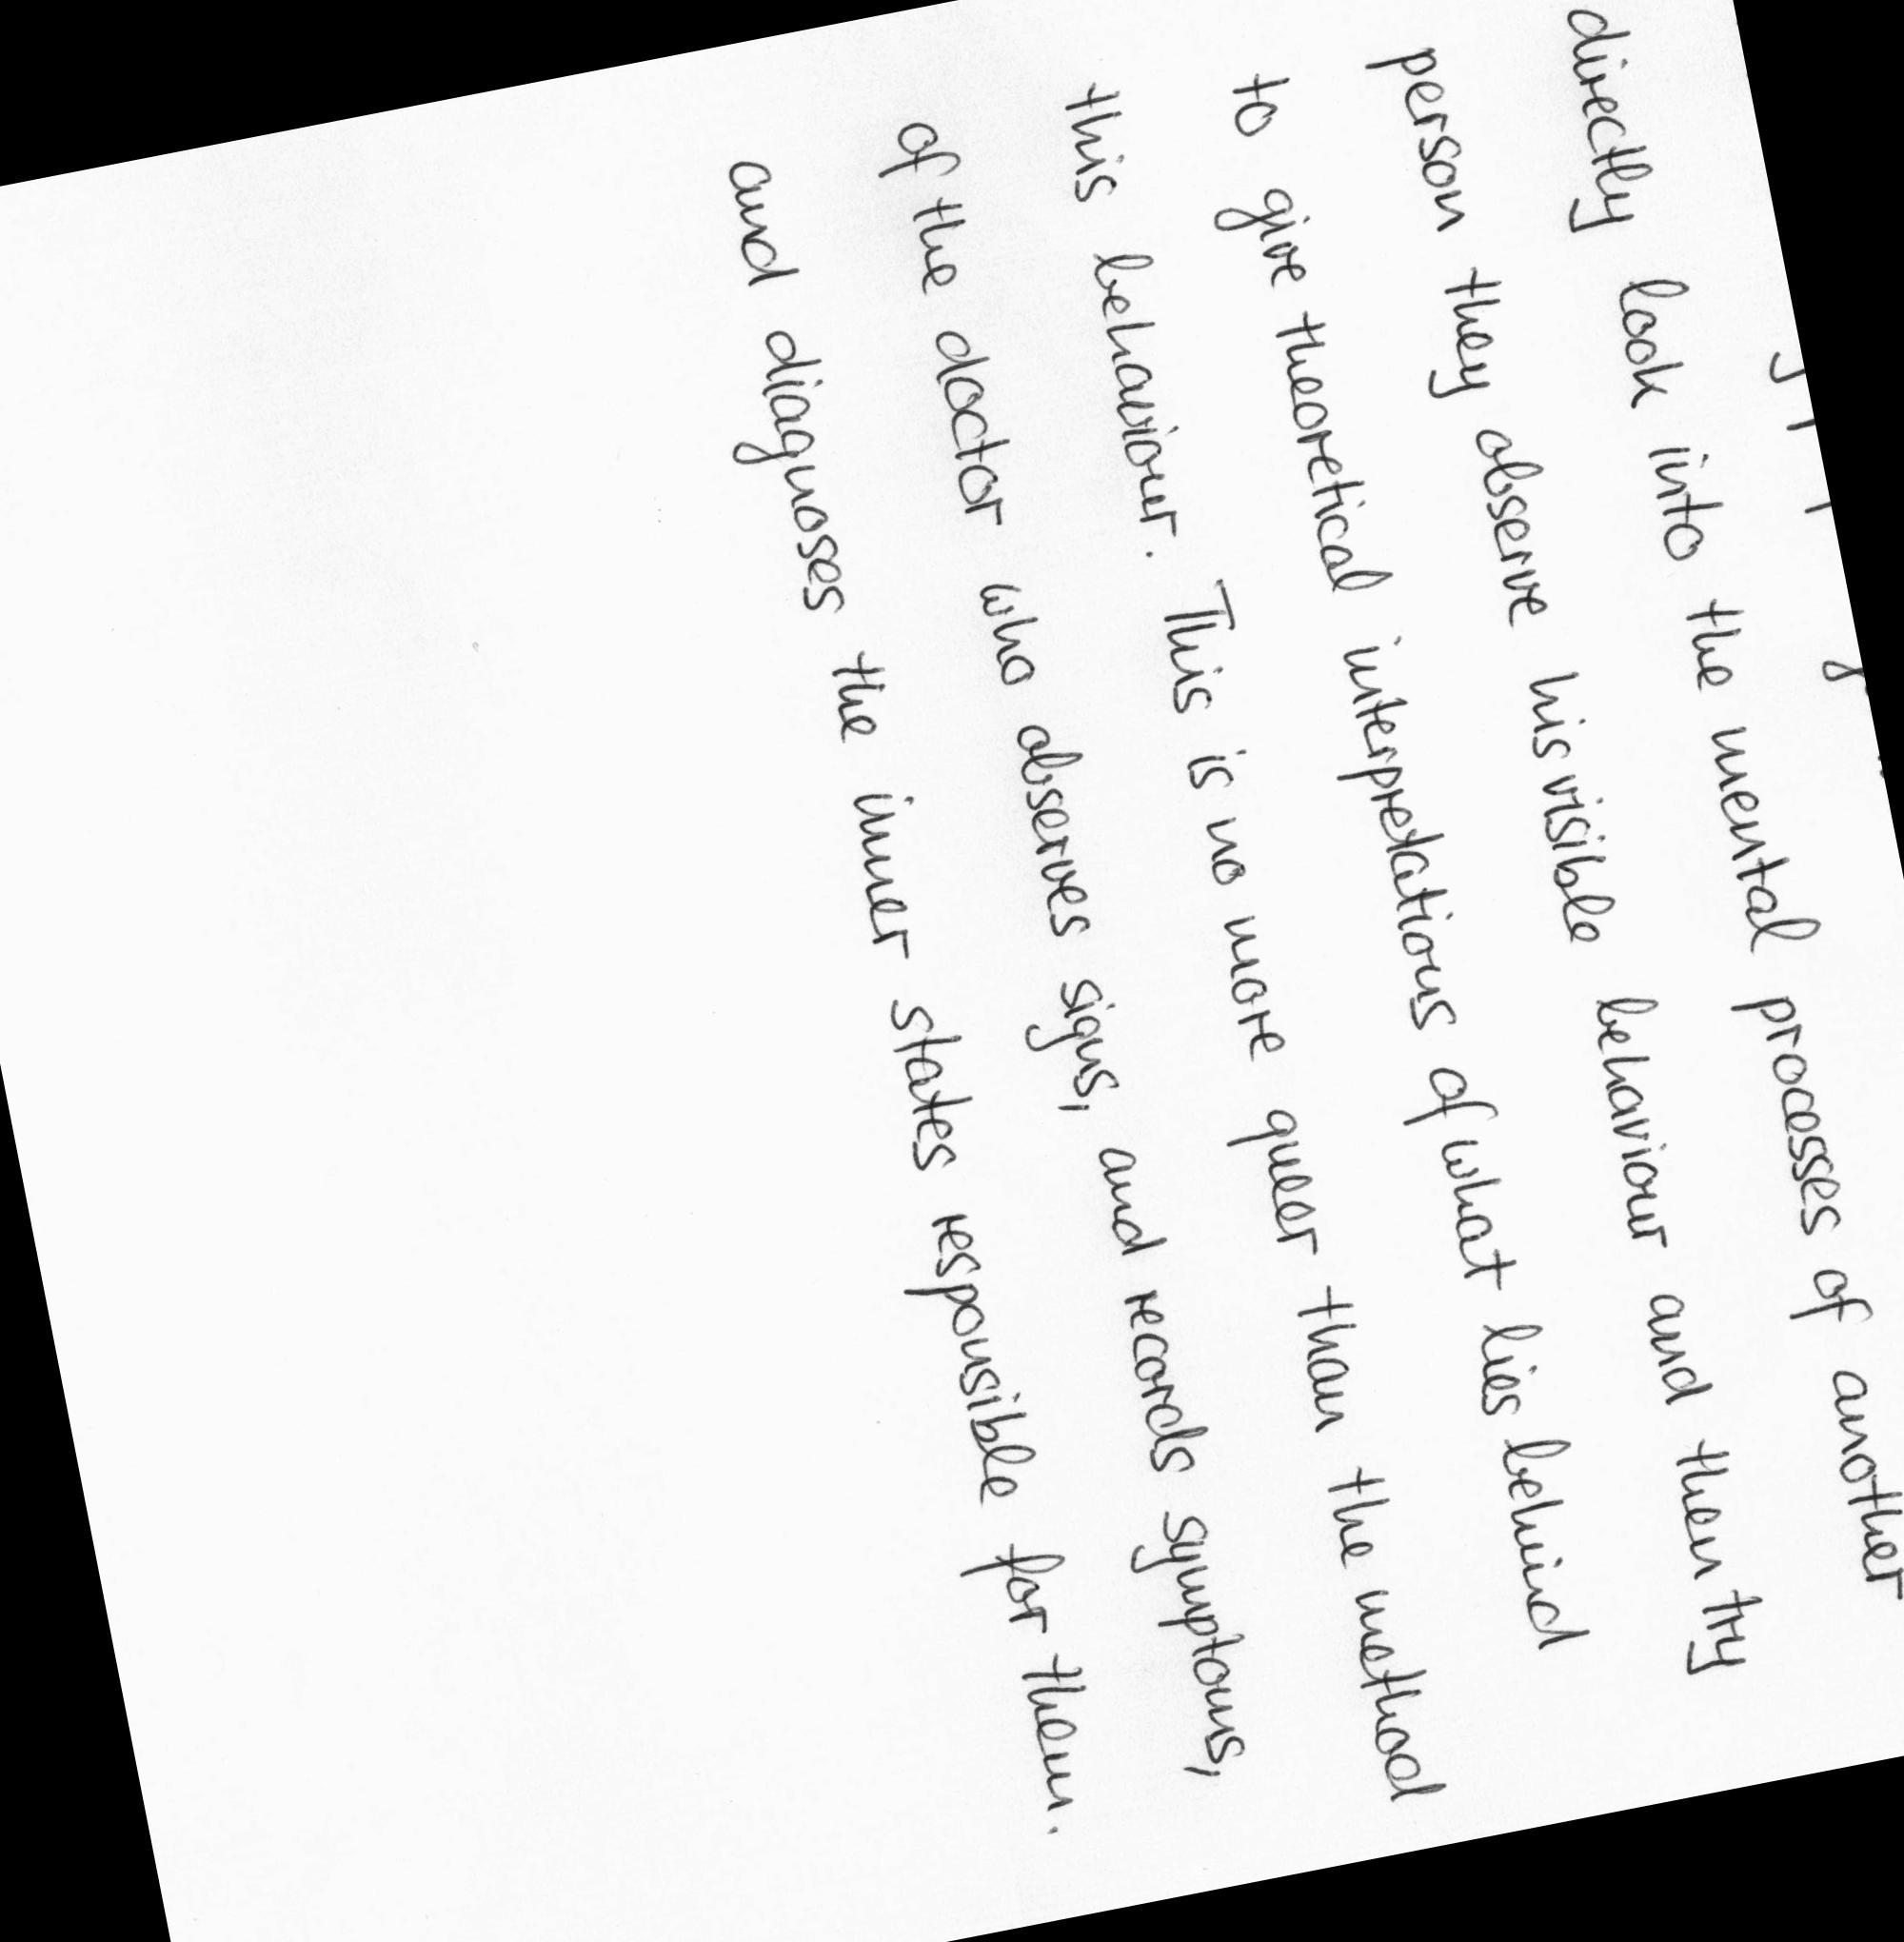 directly look into the mental processes of another
person they observe his visible behaviour and then try
to give theoretical interpretations of what lies behind
this behaviour. This is no more queer than the method
of the doctor who observes signs, and records symptoms,
and diagnoses the inner states responsible for them.